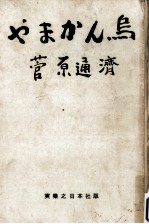 やまかん烏
菅原通濟
實業之日本社版